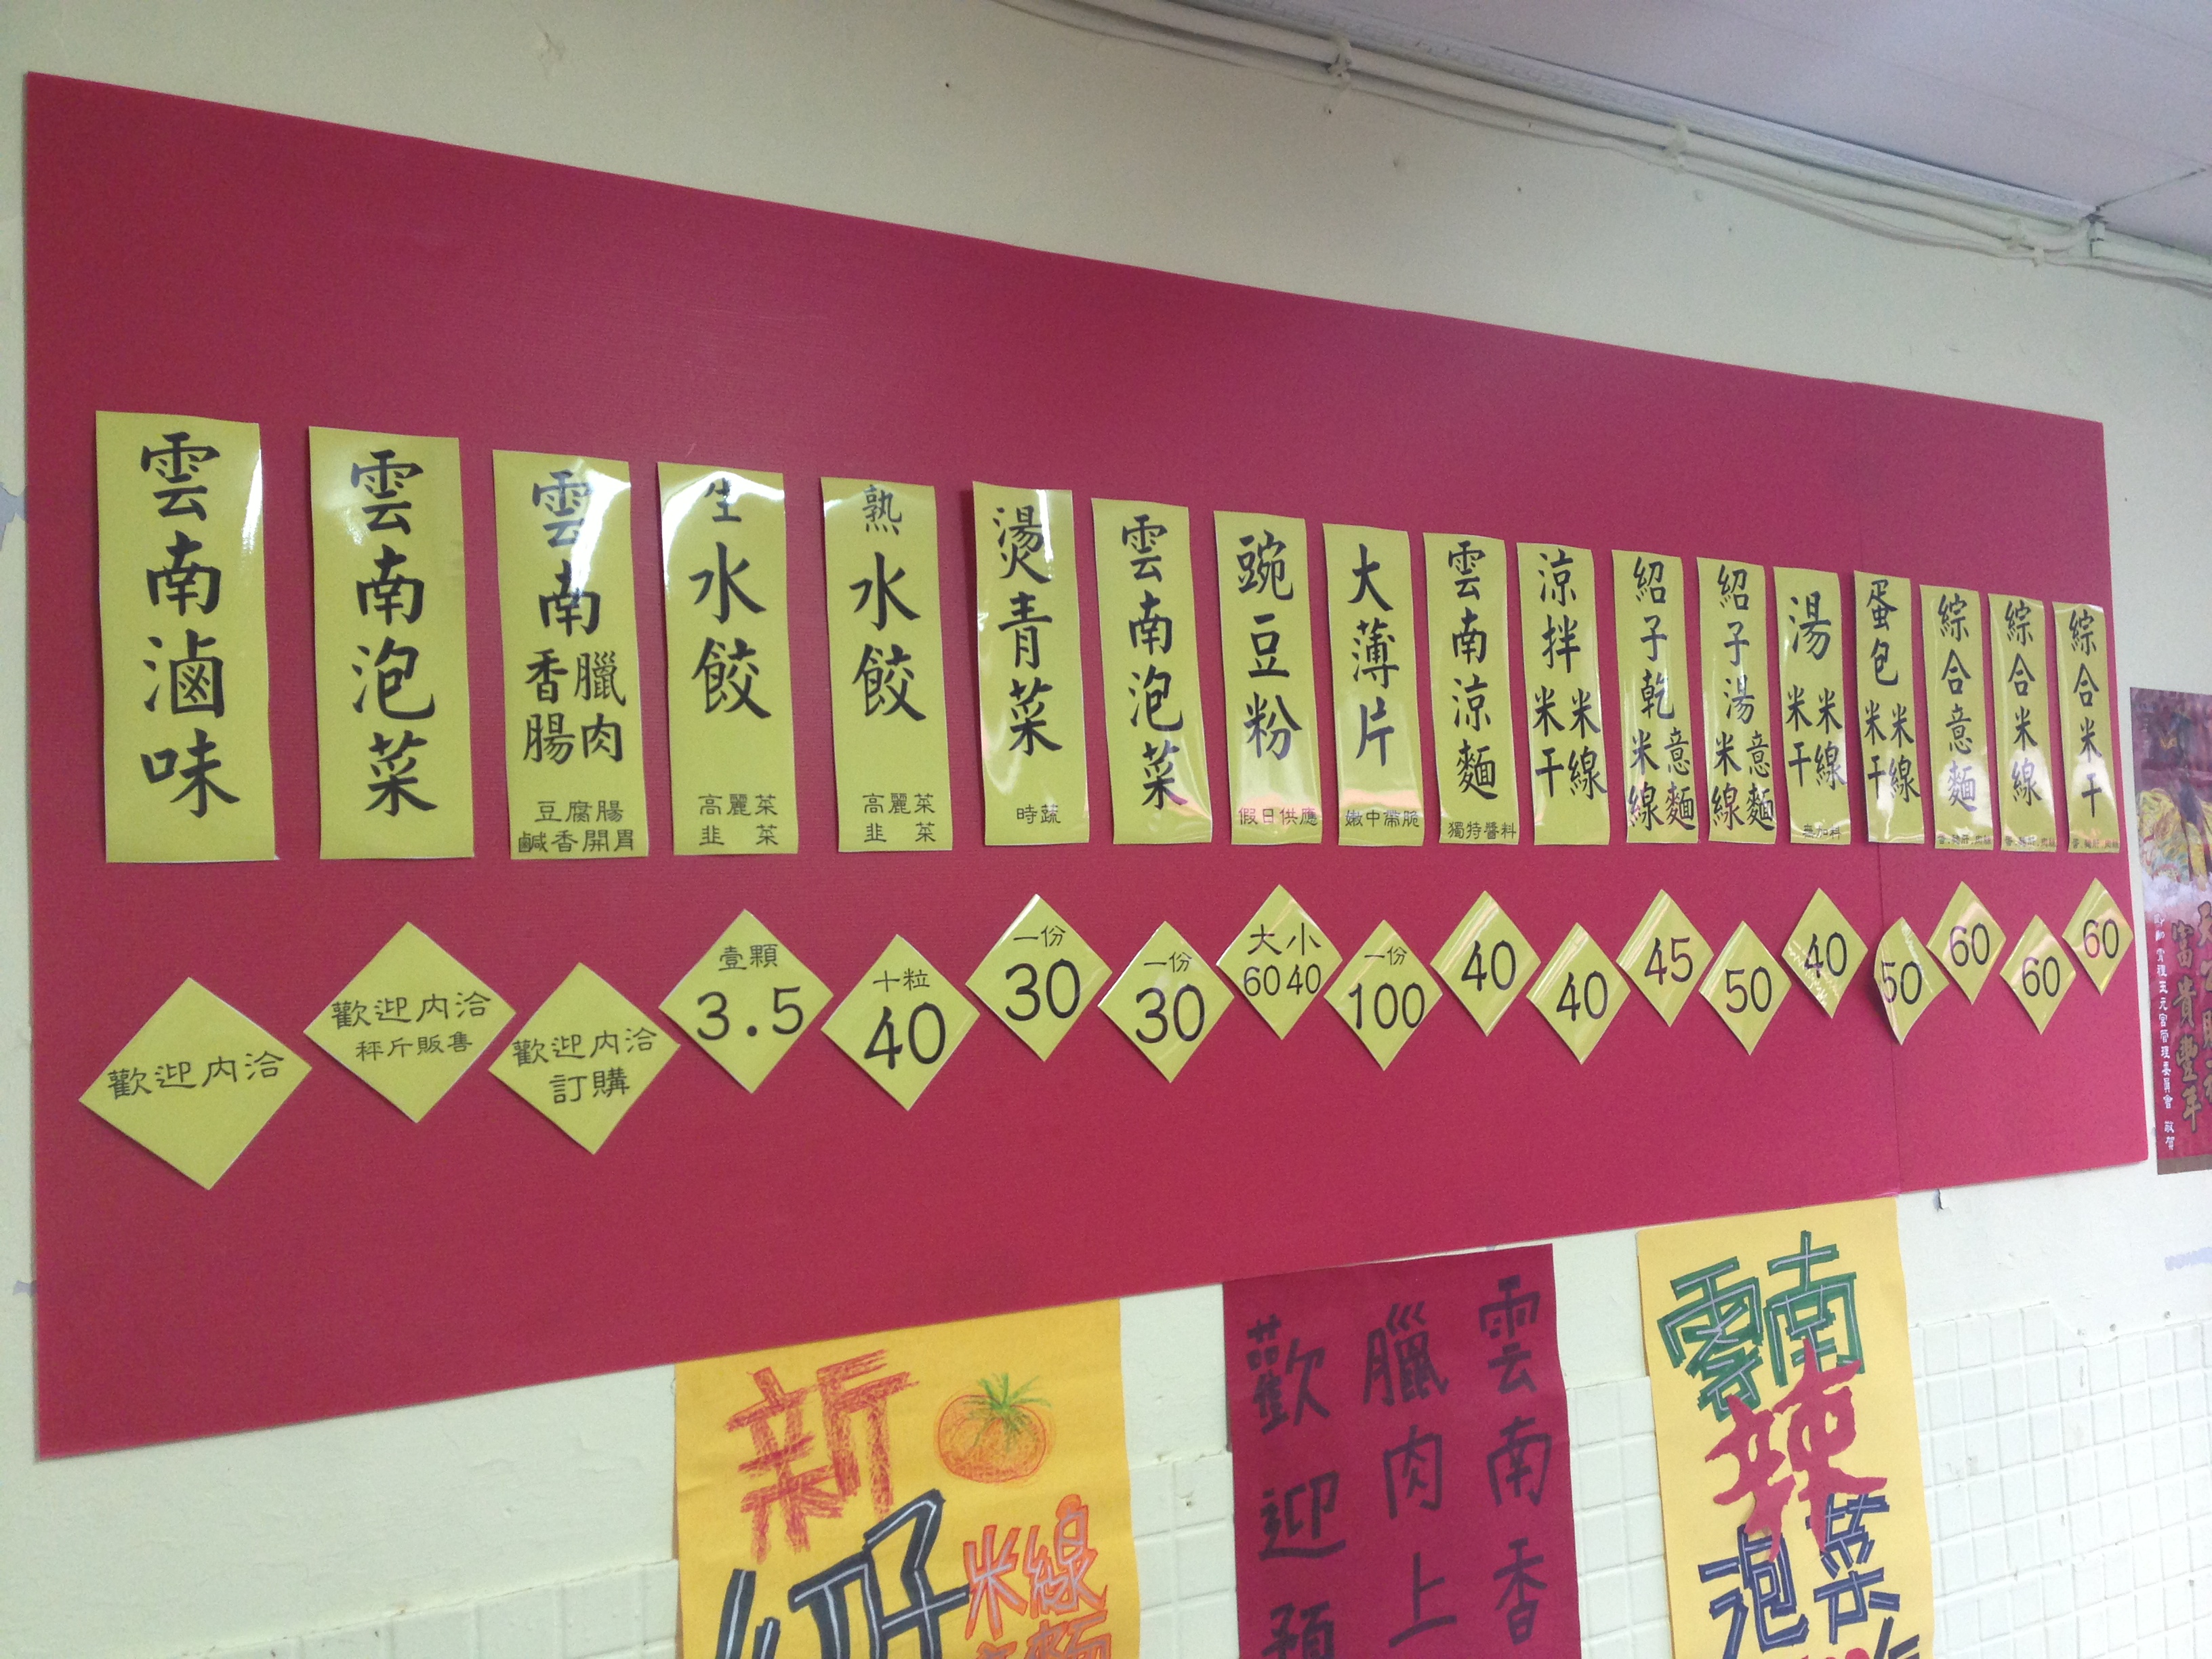 綜合米干
60
綜合米線
60
綜合意麵
60
蛋包米線米干
50
湯米線米干
40
紹子湯意麵米線
50
紹子乾意麵米線
45
涼拌米線米干
40
雲南涼麵
獨特醬料
40
大薄片
嫩中帶脆
一份
100
豌豆粉
假日供應
大 小
60 40
雲南泡菜
一份
30
燙青菜
時蔬
一份
30
熟水餃
高麗菜
韭 菜
十粒
40
生水餃
高麗菜
韭 菜
壹顆
3.5
雲南臘肉香腸
豆腐腸
鹹香開胃
歡迎內洽
訂購
雲南泡菜
歡迎內洽
秤斤販售
雲南滷味
歡迎內洽
新
米線
雲南香
臘肉上
歡迎預
雲南
辣
泡菜
富貴豐年